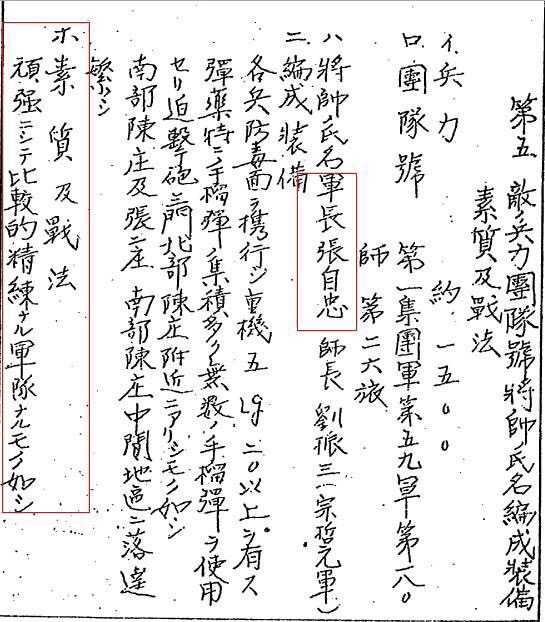 第五 敵ノ兵力團隊號將帥ノ氏名編成裝備
素質及戰法
イ、兵力 約一五〇〇
ロ、團隊號 第一集團軍第五九軍第一八〇
師第二六旅
ハ、將帥ノ氏名軍長張自忠 師長劉振三(宗哲元軍)
ニ、編成裝備
各兵防毒面ヲ携行シ重機五 LG二〇以上ヲ有ス
彈藥特ニ手榴彈ノ集積多ク無數ノ手榴彈ヲ使用
セリ迫擊砲三門北部陳庄附近ニアリシモノ如シ
南部陳庄及張庄、南部陳庄中間地區ニ落達
繁シ
ホ、素質及戰法
頑强ニシテ比較的精練ナル軍隊ナルモノ如シ